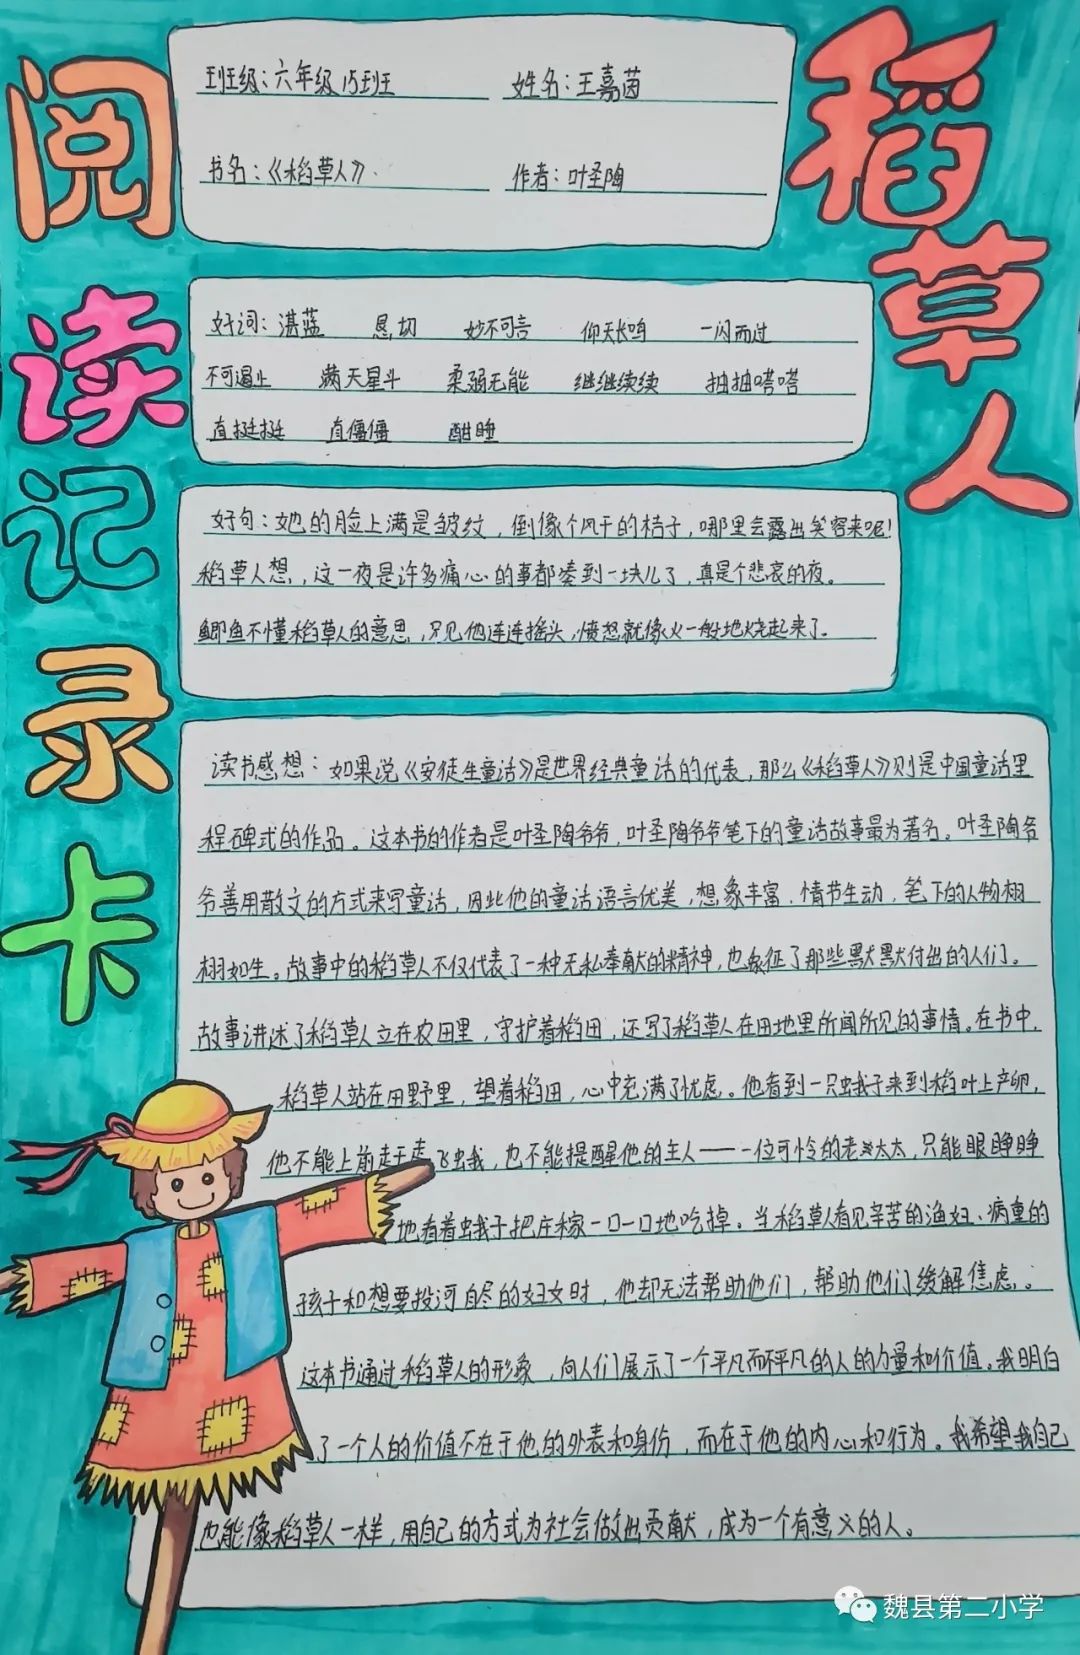 阅读记录卡
稻草人
班级：六年级15班 姓名：王嘉茵
书名：《稻草人》 作者：叶圣陶
好词：湛蓝 恳切 妙不可言 仰天长鸣 一闪而过
不可遏止 满天星斗 柔弱无能 继继续续 抽抽嗒嗒
直挺挺 直僵僵 酣睡
好句：她的脸上满是皱纹，倒像个风干的桔子，哪里会露出笑容来呢！
稻草人想，这一夜是许多痛心的事都凑到一块儿了，真是个悲哀的夜。
鲫鱼不懂稻草人的意思，只见他连连摇头，愤怒就像火一般地烧起来了。
读书感想：如果说《安徒生童话》是世界经典童话的代表，那么《稻草人》则是中国童话里
程碑式的作品。这本书的作者是叶圣陶爷爷，叶圣陶爷爷笔下的童话故事最为著名。叶圣陶爷
爷善用散文的方式来写童话，因此他的童话语言优美，想象丰富，情节生动，笔下的人物栩
栩如生。故事中的稻草人不仅代表了一种无私奉献的精神，也象征了那些默默付出的人们。
故事讲述了稻草人立在农田里，守护着稻田，还写了稻草人在田地里所闻所见的事情。在书中，
稻草人站在田野里，望着稻田，心中充满了忧虑。他看到一只蛾子来到稻叶上产卵，
他不能上前赶走飞蛾，也不能提醒他的主人——一位可怜的老太太，只能眼睁睁
地看着蛾子把庄稼一口一口地吃掉。当稻草人看见辛苦的渔妇、病重的
孩子和想要投河自尽的妇女时，他却无法帮助他们，帮助他们缓解焦虑。
这本书通过稻草人的形象，向人们展示了一个平凡而不平凡的人的力量和价值。我明白
了一个人的价值不在于他的外表和身份，而在于他的内心和行为。我希望我自己
也能像稻草人一样，用自己的方式为社会做出贡献，成为一个有意义的人。
魏县第二小学